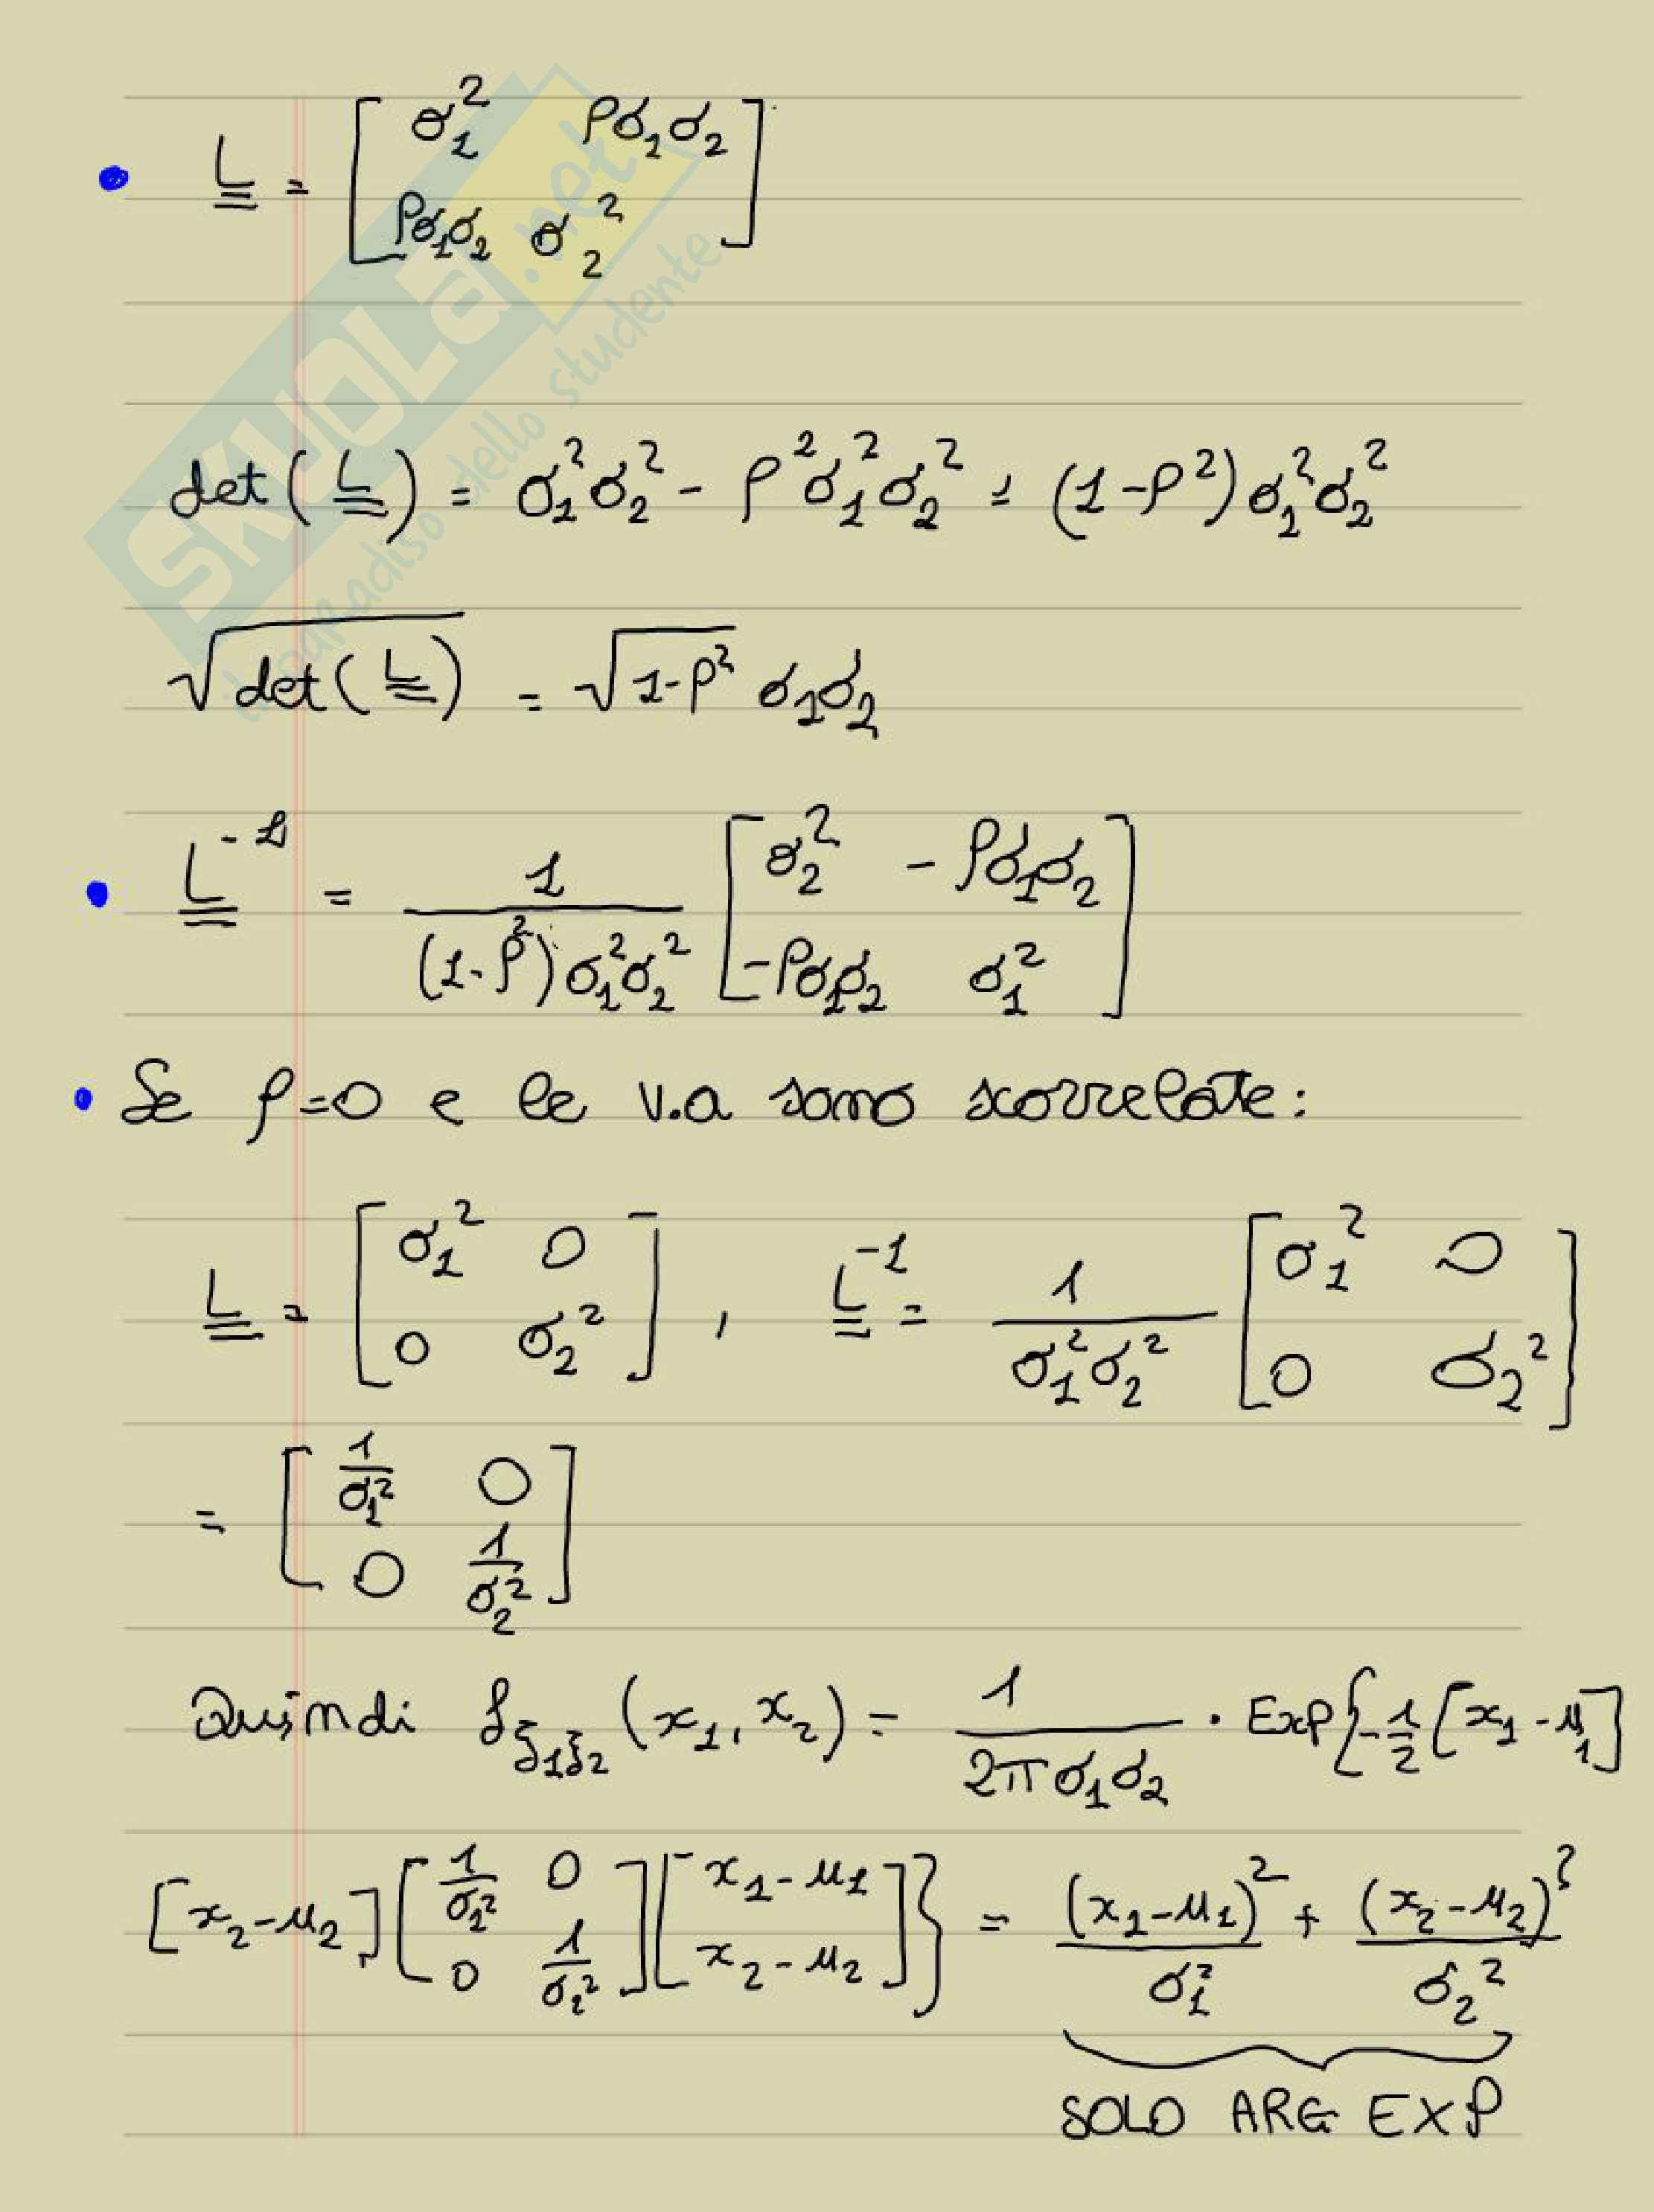 L = [ σ₁² ρσ₁σ₂
ρσ₁σ₂ σ₂² ]
SKUOLa.net
il paradiso dello studente
det(L) = σ₁²σ₂² - ρ²σ₁²σ₂² = (1-ρ²)σ₁²σ₂²
√det(L) = √1-ρ² σ₁σ₂
L⁻¹ = 1/((1-ρ²)σ₁²σ₂²) [ σ₂² -ρσ₁σ₂
-ρσ₁σ₂ σ₁² ]
Se ρ=0 e le v.a sono scorrelate:
L = [ σ₁² 0
0 σ₂² ] , L⁻¹ = 1/(σ₁²σ₂²) [ σ₁² 0
0 σ₂² ]
= [ 1/σ₁² 0
0 1/σ₂² ]
Quindi f_ξ₁ξ₂ (x₁, x₂) = 1/(2πσ₁σ₂) · Exp{-1/2 [x₁-μ₁]
[x₂-μ₂] [ 1/σ₁² 0
0 1/σ₂² ] [ x₁-μ₁
x₂-μ₂ ]} = (x₁-μ₁)²/σ₁² + (x₂-μ₂)²/σ₂²
SOLO ARG EXP